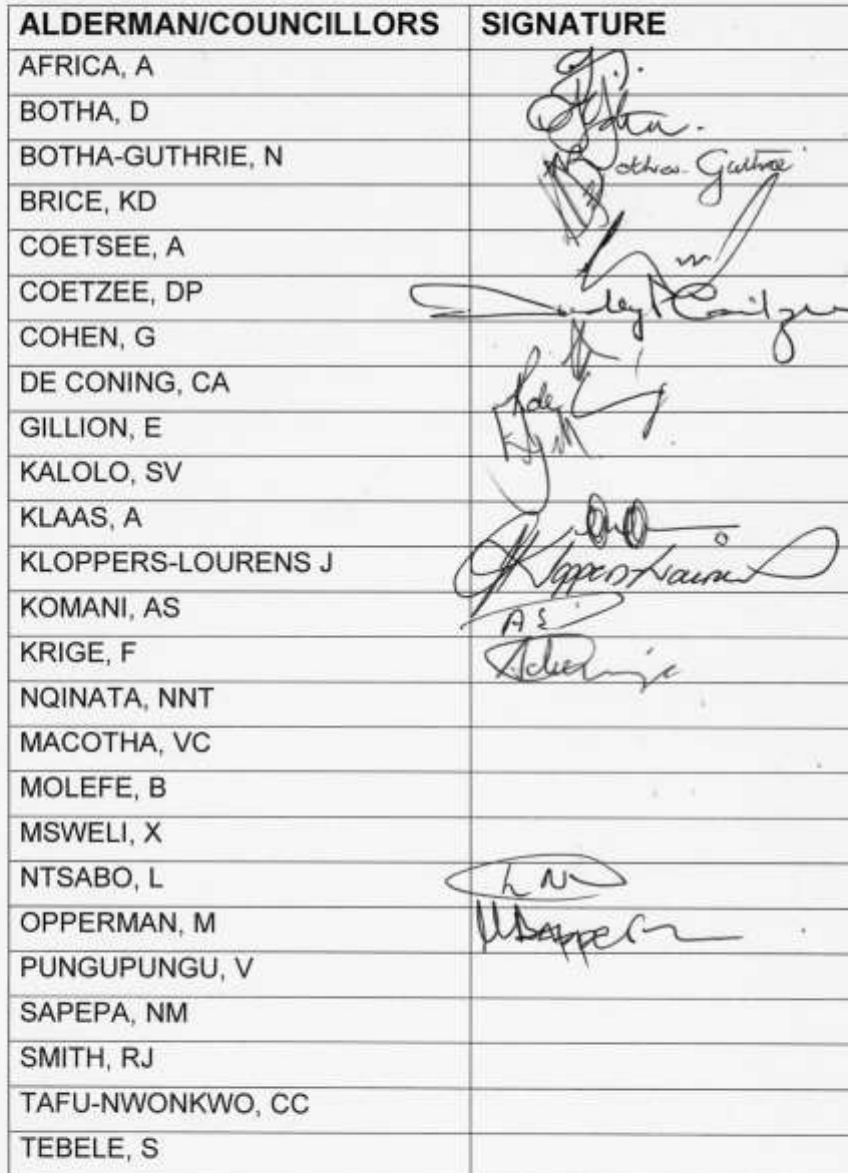 ALDERMAN/COUNCILLORS SIGNATURE
AFRICA, A
BOTHA, D
BOTHA-GUTHRIE, N Botha-Guthrie
BRICE, KD
COETSEE, A
COETZEE, DP
COHEN, G
DE CONING, CA
GILLION, E
KALOLO, SV
KLAAS, A
KLOPPERS-LOURENS J
KOMANI, AS AS
KRIGE, F
NQINATA, NNT
MACOTHA, VC
MOLEFE, B
MSWELI, X
NTSABO, L LN
OPPERMAN, M
PUNGUPUNGU, V
SAPEPA, NM
SMITH, RJ
TAFU-NWONKWO, CC
TEBELE, S